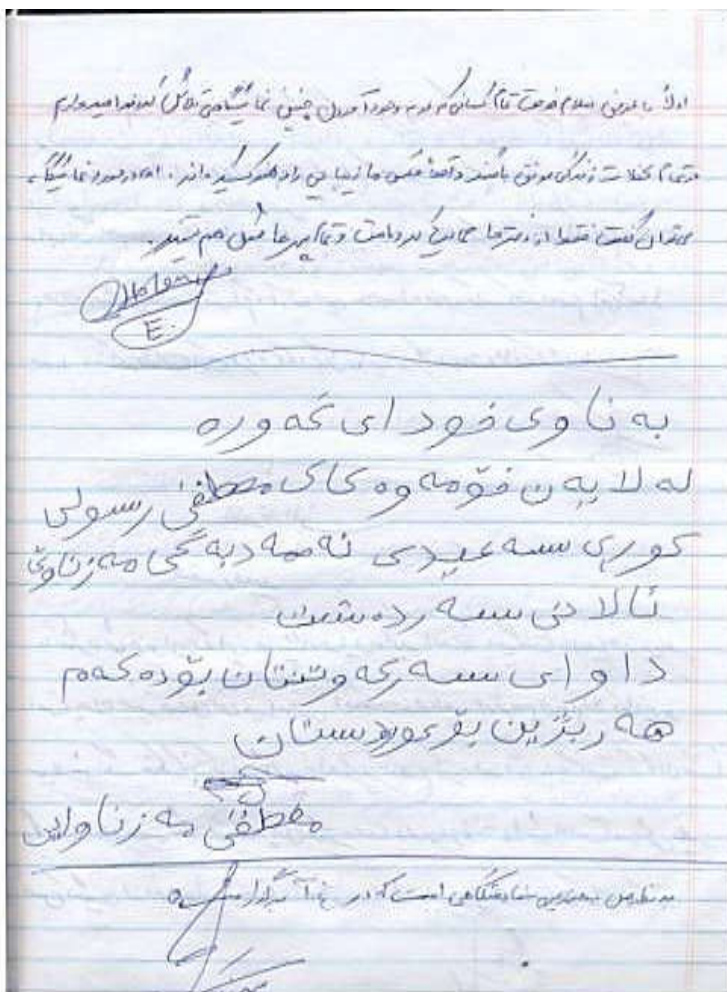 اولاً با عرض سلام خدمت تمام کسانی که در به وجود آمدن چنین نمایشگاهی تلاش کردند امیدوارم
در تمام لحظات زندگی موفق باشند و آمدهٔ عکس ها زیبا در راه هنر کشیده‌اند. اما در مورد نمایشگاه
می‌توان گفت فقط از دخترها عکس برداشت و تمام پسرها مثل هم هستند.
E.
به ناوی خودای گه‌وره
له لایه‌ن خۆمه‌وه کاک مصطفی رسولی
کوری سه‌عیدی ئه‌حمه‌دبه‌گی مه‌زناوێ
ئالانی سه‌رده‌شت
داوای سه‌رکه‌وتنتان بۆ ده‌که‌م
هه‌ر بژین بۆ کوردستان
مصطفی مه‌زناوێ
به نظر من بهترین نمایشگاهی است که در برگزار شده